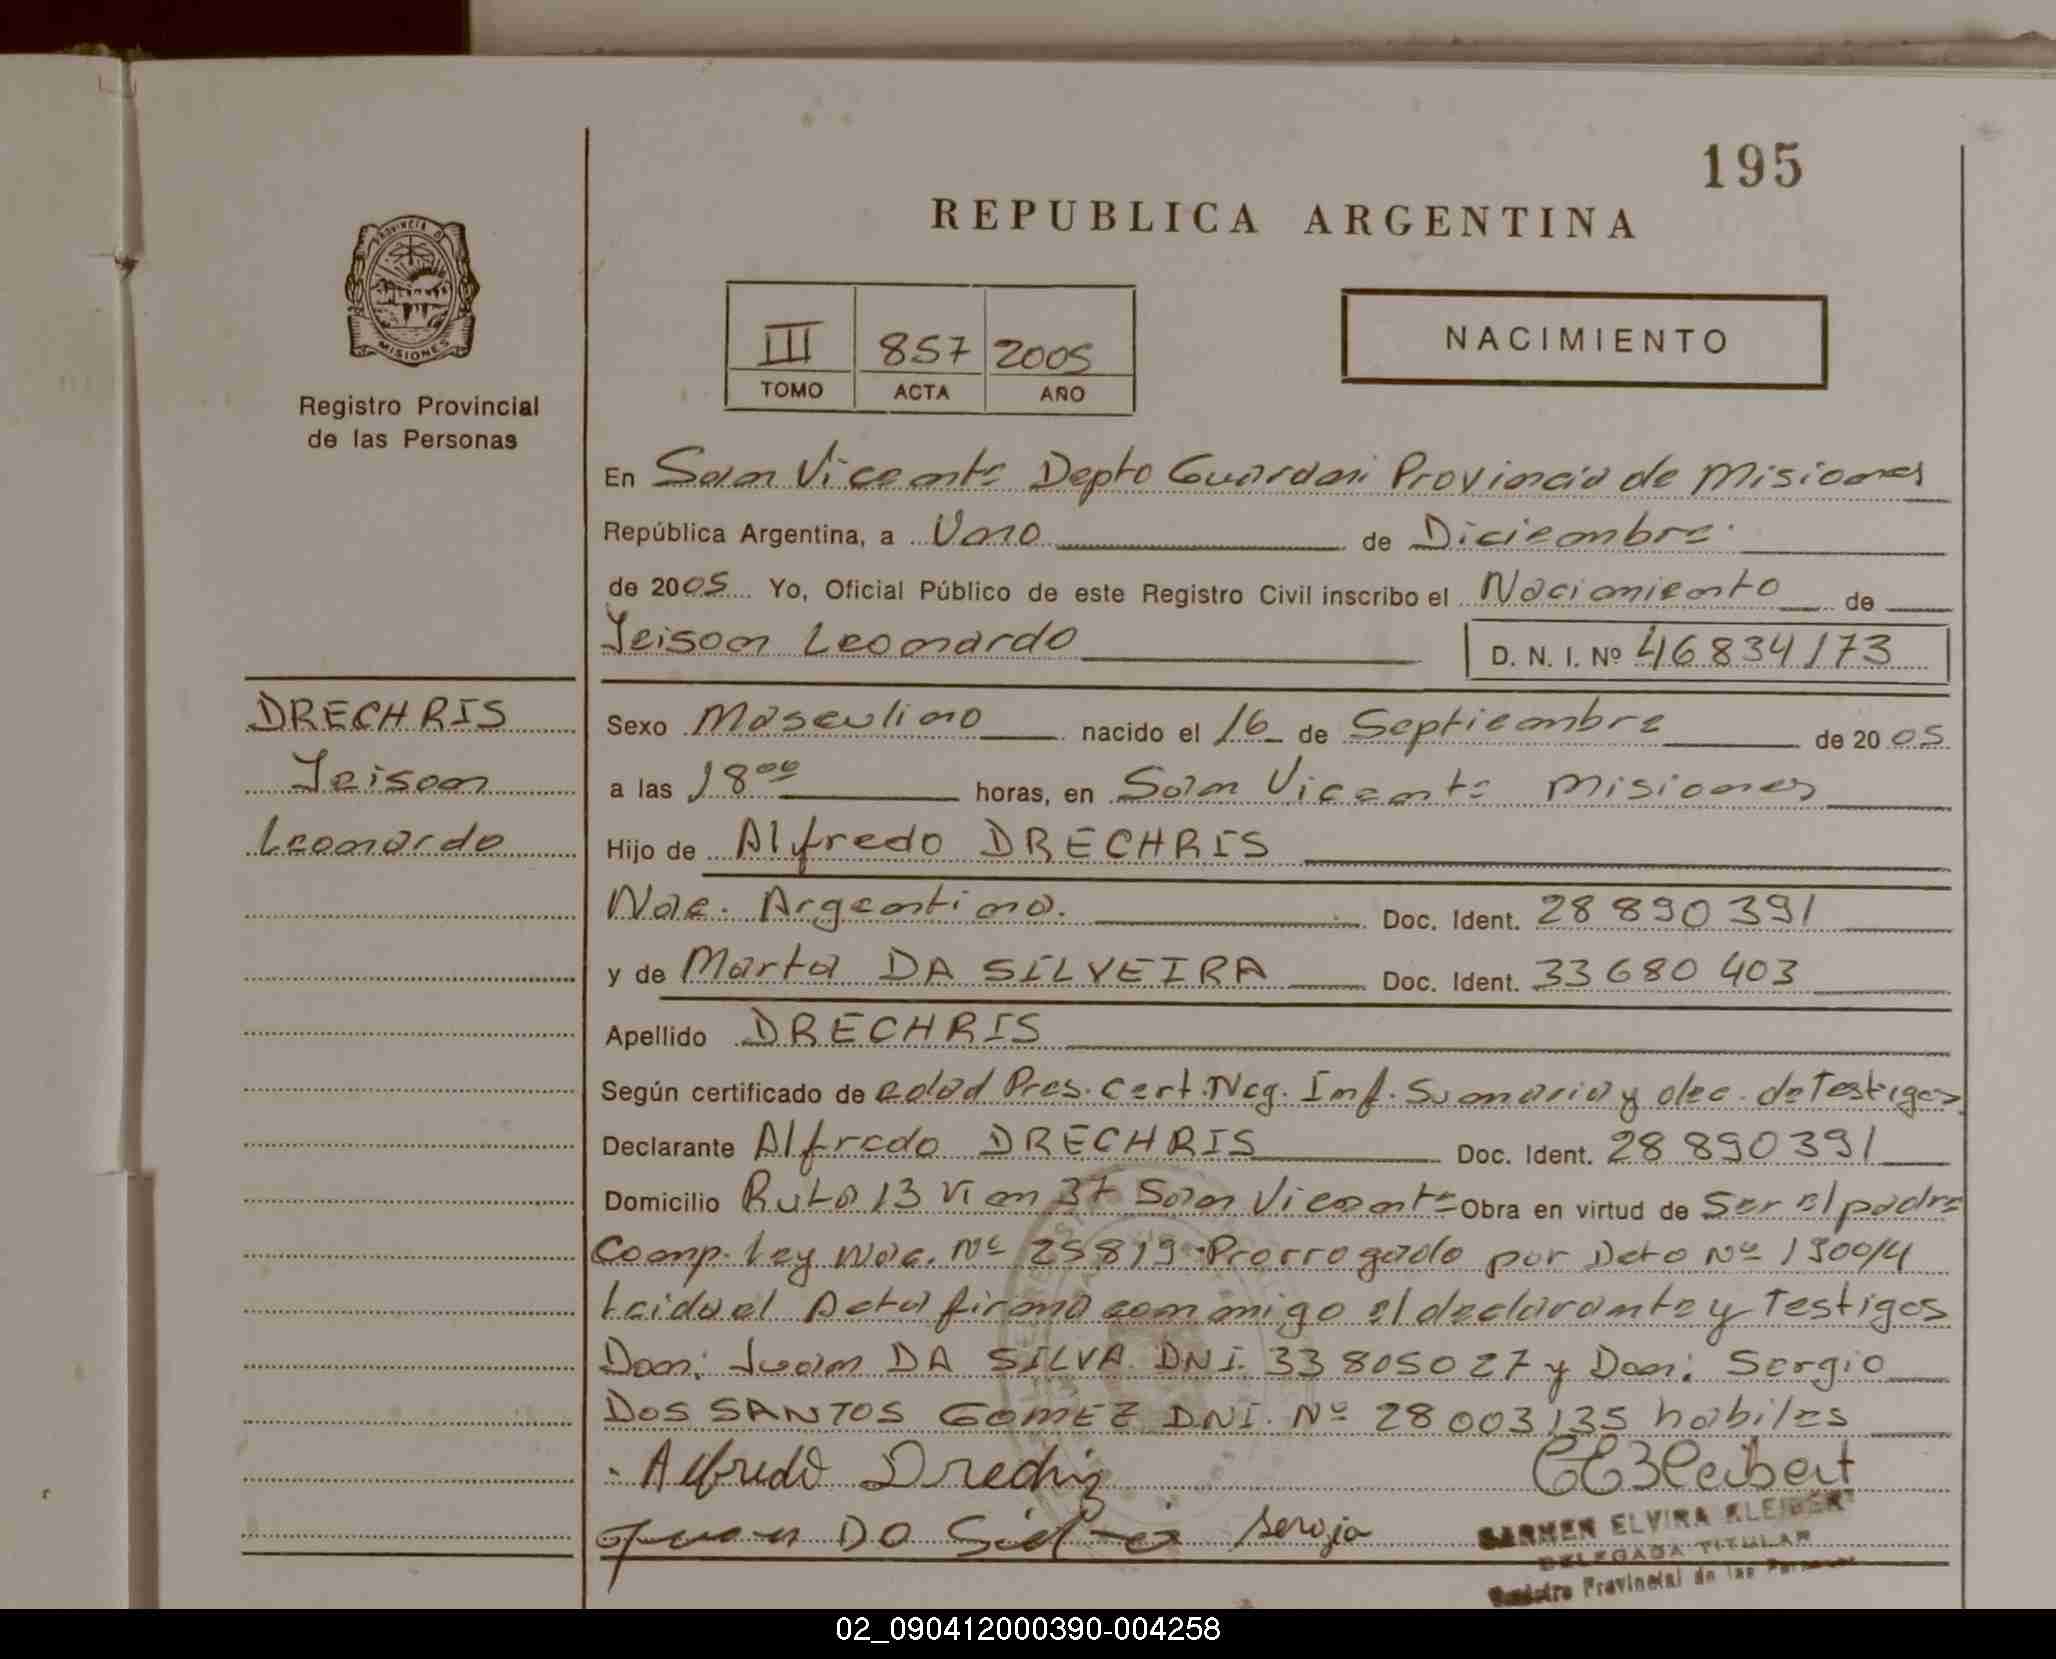 195
REPUBLICA ARGENTINA
PROVINCIA DE
MISIONES
Registro Provincial
de las Personas
III 857 2005
TOMO ACTA AÑO
NACIMIENTO
En San Vicente Depto Guarani Provincia de Misiones
República Argentina, a Uno de Diciembre
de 2005 Yo, Oficial Público de este Registro Civil inscribo el Nacimiento de
Jeison Leonardo D. N. I. Nº 46834173
DRECHRIS
Jeison
Leonardo
Sexo Masculino nacido el 16 de Septiembre de 2005
a las 18⁰⁰ horas, en San Vicente Misiones
Hijo de Alfredo DRECHRIS
Nac. Argentina. Doc. Ident. 28890391
y de Marta DA SILVEIRA Doc. Ident. 33680403
Apellido DRECHRIS
Según certificado de edad Pres. Cert. Neg. Inf. Sumaria y dec. de Testigos
Declarante Alfredo DRECHRIS Doc. Ident. 28890391
Domicilio Ruta 13 37 San Vicente Obra en virtud de Ser el padre
Comp. Ley Nac. Nº 25819 Prorrogado por Dcto Nº 1900/4
Leida el Acta firma conmigo el declarante y Testigos
Don: Juan DA SILVA DNI. 33805027 y Don: Sergio
DOS SANTOS GOMEZ DNI. Nº 28003135 habiles
Alfredo Drechris
Juan Da Silva Sergio
CARMEN ELVIRA KLEIBERT
DELEGADA TITULAR
Registro Provincial de las Personas
02_090412000390-004258